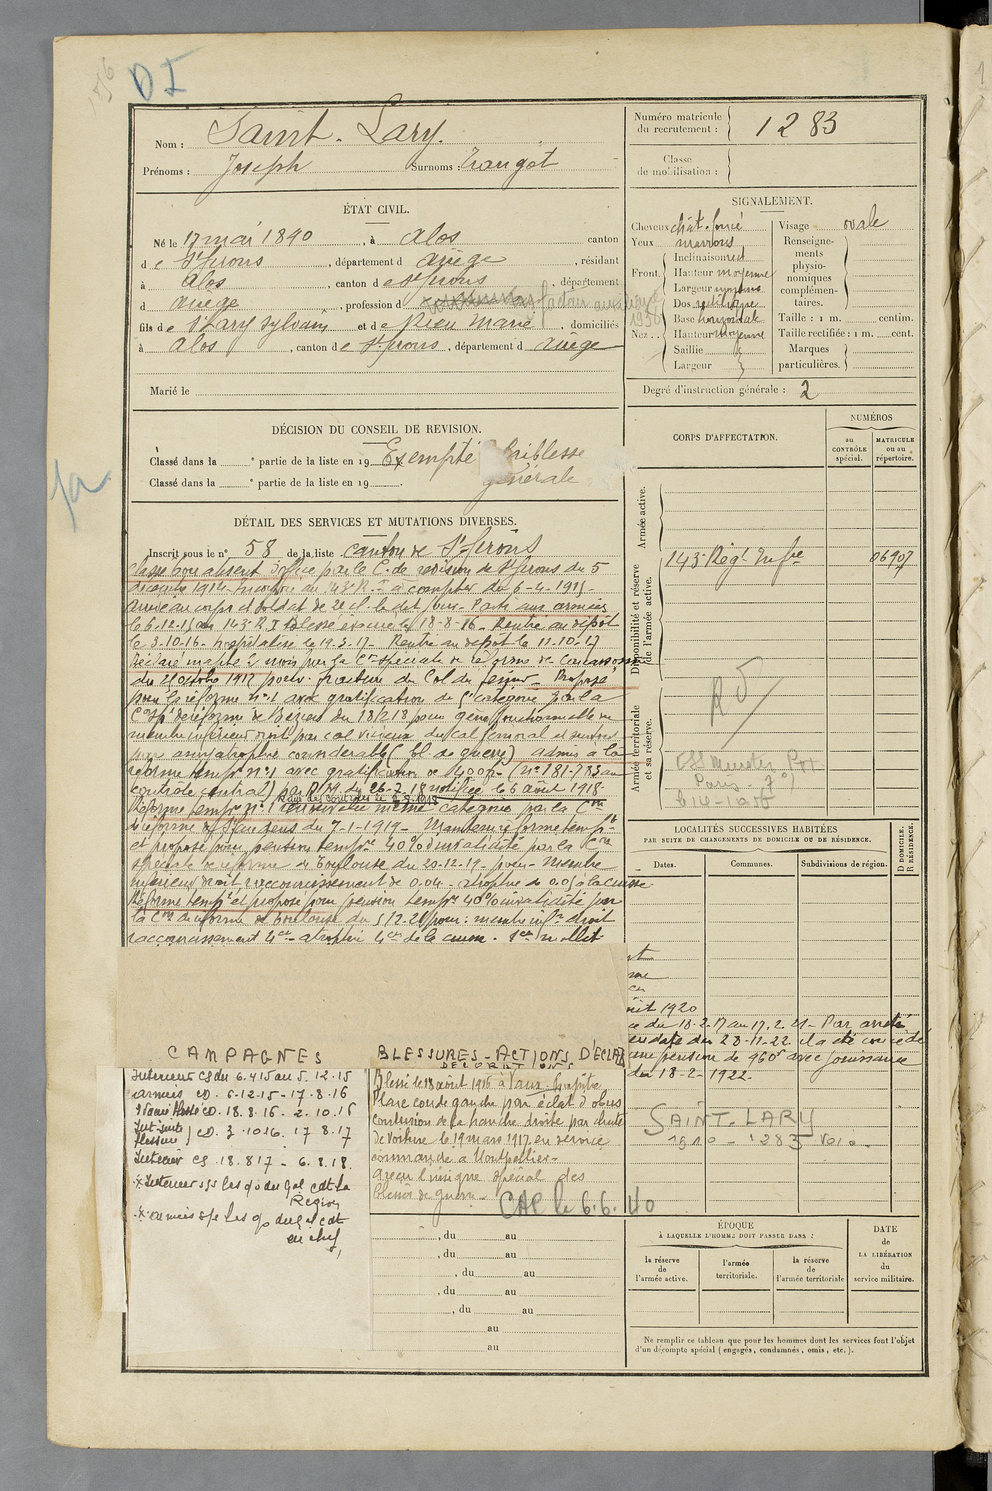 D I
Nom : Saint-Lary.
Prénoms : Joseph Surnoms :
Numéro matricule
du recrutement : 1283
Classe
de mobilisation :
ÉTAT CIVIL.
Né le 17 mai 1890, à Alos canton
de St Girons, département d Ariège, résidant
à Alos, canton de St Girons, département
d Ariège, profession d
fils de St Lary Sylvain et de Rieu Marie, domiciliés
à Alos, canton de St Girons, département d Ariège
Marié le
SIGNALEMENT.
Cheveux chât. foncé
Yeux marrons
Front. Inclinaison
Hauteur moyenne
Largeur moyenne
Nez . . Dos rectiligne
Base horizontale
Hauteur moyenne
Saillie
Largeur
Visage ovale
Renseigne-
ments
physio-
nomiques
complémen-
taires.
Taille : 1 m. centim.
Taille rectifiée : 1 m. cent.
Marques
particulières.
Degré d'instruction générale : 2
DÉCISION DU CONSEIL DE REVISION.
Classé dans la e partie de la liste en 19 Exempté faiblesse
Classé dans la e partie de la liste en 19 . générale
DÉTAIL DES SERVICES ET MUTATIONS DIVERSES.
Inscrit sous le n° 58 de la liste canton de St Girons
Classé bon absent d'office par le C. de revision de St Girons du 5
décembre 1914. Incorporé au 143e R. I. à compter du 6-4-1915
arrivé au corps et soldat de 2e cl. le dit jour. Parti aux armées
le 6.12.15 au 143 R. I. Blessé évacué le 18-8-16. Rentré au dépôt
le 3-10-16. hospitalisé le 19.3.17. Rentré au dépôt le 11.10.17
Déclaré inapte 2 mois par la Con spéciale de réforme de Carcassonne
du 25 octobre 1917 pour : fracture du Col du fémur. Proposé
pour la réforme n° 1 avec gratification de catégorie par la
Con spl de réforme de Béziers du 18/2/18 pour gêne fonctionnelle du
membre inférieur droit par cal vicieux du col fémoral et surtout
par amyotrophie considérable (bl. de guerre) admis à la
réforme tempre n° 1 avec gratification de 400 fr. (n° 181-783 au
contrôle central) par D. M. du 26-7-18 notifiée le 6 août 1918.
Rayé des contrôles le
Réforme tempre n° 1 renouvelée même catégorie par la Con
de réforme de St Gaudens du 7-1-1919. Maintenu réforme tempre
et proposé pour pension tempre 40% d'invalidité par la Con
spéciale de réforme de Toulouse du 20-12-19 pour : Membre
inférieur droit raccourcissement de 0.04 - atrophie de 0.05 à la cuisse
Réforme tempre et proposé pour pension tempre 40% invalidité par
la Con de réforme de Toulouse du 5/2.21 pour : membre infr droit
raccourcissement 4cm atrophie 4cm de la cuisse. 1cm mollet
août 1920
du 18-2-17 au 17.2.21. Par arrêté
en date du 28-11-22 il a été concédé
une pension de 960f avec jouissance
du 18-2-1922.
CORPS D'AFFECTATION.
NUMÉROS
au
CONTRÔLE
spécial.
MATRICULE
ou au
répertoire.
Armée active.
Disponibilité et réserve
de l'armée active.
143e Régt Infie 06907
Armée territoriale
et sa réserve.
LOCALITÉS SUCCESSIVES HABITÉES
PAR SUITE DE CHANGEMENTS DE DOMICILE OU DE RÉSIDENCE.
Dates.
Communes.
Subdivisions de région.
D DOMICILE.
R RÉSIDENCE.
SAINT-LARY
1910 - 1283
CAMPAGNES
Intérieur CS du 6.4.15 au 5.12.15
armées CD. 6-12-15 - 17.8.16
Evacué blessé CD. 18.8.16 - 2.10.16
Int suite
blessure CD. 3.10.16. 17.8.17
Intérieur CS. 18.8.17 - 6.8.18.
BLESSURES - ACTIONS D'ECLAT
DECORATIONS
Blessé le 18 août 1916 à Vaux-Chapitre
Plaie coude gauche par éclat d'obus
contusion de la hanche droite par chute
de voiture le 19 mars 1917 en service
commandé à Montpellier.
A reçu l'insigne spécial des
blessés de guerre.
, du au
, du au
, du au
, du au
, du au
au
au
ÉPOQUE
À LAQUELLE L'HOMME DOIT PASSER DANS :
la réserve
de
l'armée active.
l'armée
territoriale.
la réserve
de
l'armée territoriale
DATE
de
LA LIBÉRATION
du
service militaire.
Ne remplir ce tableau que pour les hommes dont les services font l'objet
d'un décompte spécial (engagés, condamnés, omis, etc.).